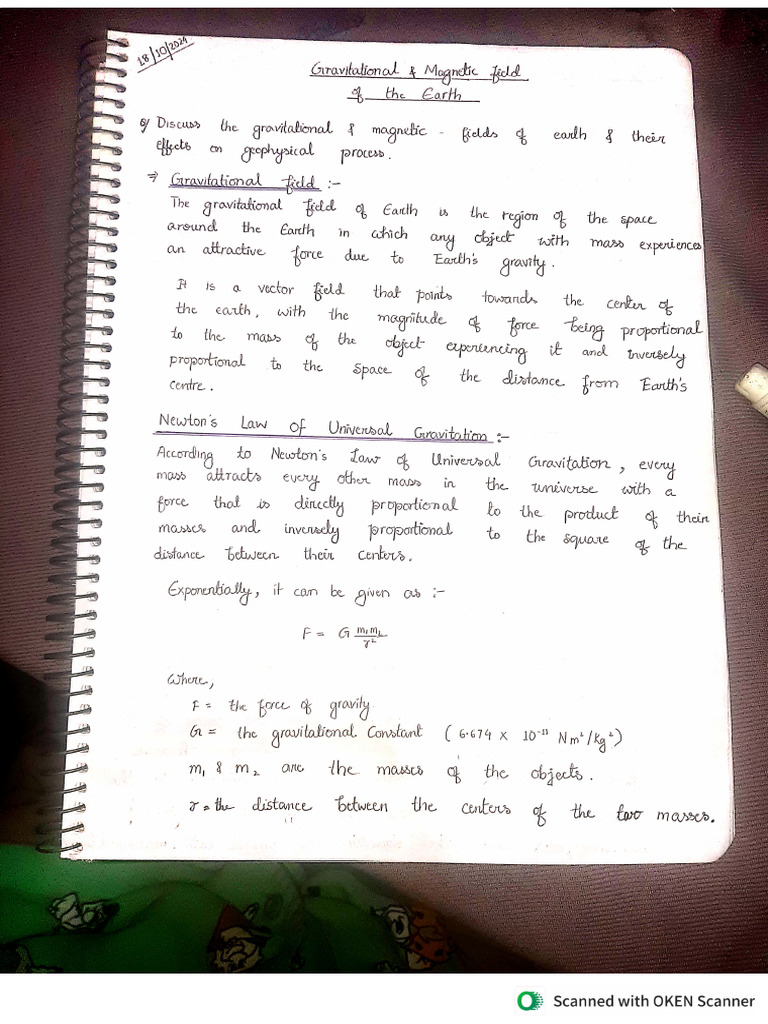 18/10/2024
Gravitational & Magnetic field
of the Earth
Q/ Discuss the gravitational & magnetic - fields of earth & their
effects on geophysical process.
⇒ Gravitational field :-
The gravitational field of Earth is the region of the space
around the Earth in which any object with mass experiences
an attractive force due to Earth's gravity.
It is a vector field that points towards the center of
the earth, with the magnitude of force being proportional
to the mass of the object experiencing it and inversely
proportional to the space of the distance from Earth's
centre.
Newton's Law of Universal Gravitation :-
According to Newton's Law of Universal Gravitation, every
mass attracts every other mass in the universe with a
force that is directly proportional to the product of their
masses and inversely proportional to the square of the
distance between their centers.
Exponentially, it can be given as :-
F = G m₁m₂/r²
Where,
F = the force of gravity
G = the gravitational Constant (6.674 × 10⁻¹¹ Nm²/kg²)
m₁ & m₂ are the masses of the objects.
r = the distance between the centers of the two masses.
Scanned with OKEN Scanner